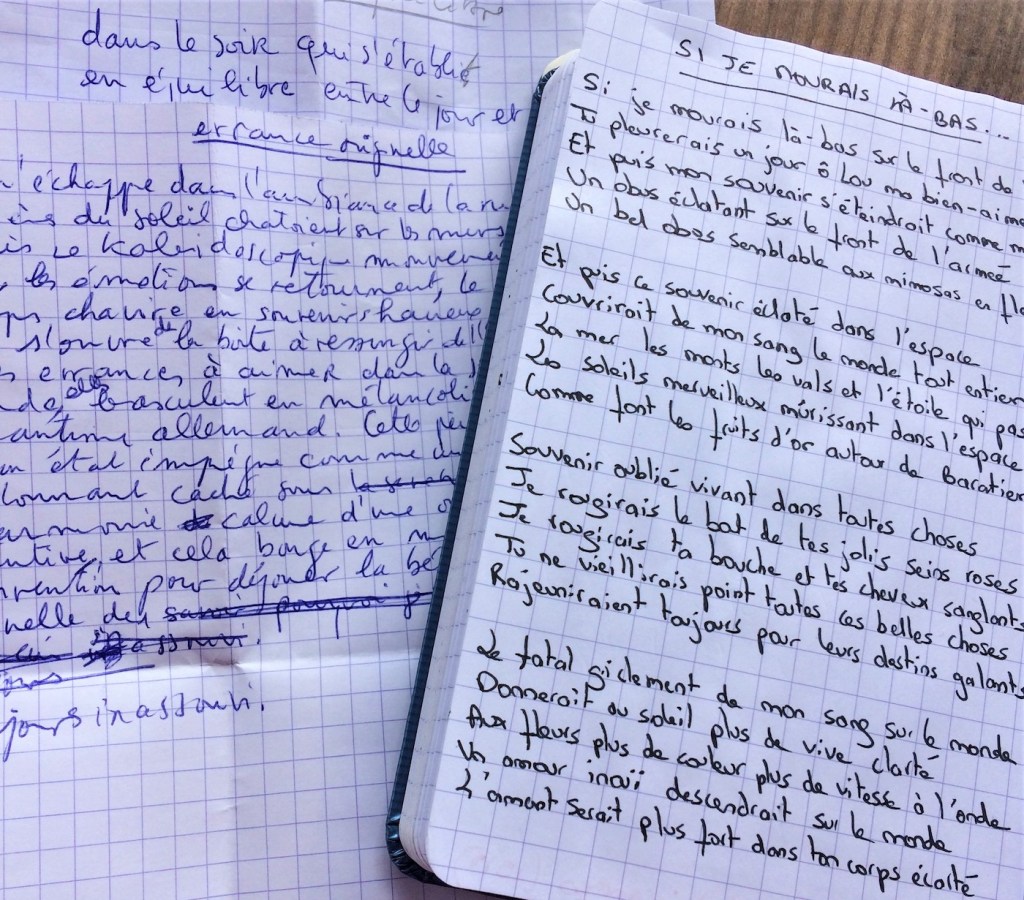 dans le soir qui s'établit
en équilibre entre le jour et
errance originelle
s'échappe dans l'ambiance de la
du soleil chatoient sur les murs
le Kaleidoscopique mouvem
les émotions se retournent, le
chavire en souvenirs
s'ouvre de la boîte à ressurgir de
errances à aimer dans la
basculent en mélancoli
allemand. Cette
un état imprégné comme un
caché sous
calme d'une
et cela bouge en
pour déjouer la
nelle des sans pourquoi
assouvi.
jours inassouvi.
SI JE MOURAIS LÀ-BAS...
Si je mourais là-bas sur le front de
Tu pleurerais un jour ô Lou ma bien-aimé
Et puis mon souvenir s'éteindrait comme m
Un obus éclatant sur le front de l'armée
Un bel obus semblable aux mimosas en fle
Et puis ce souvenir éclaté dans l'espace
Couvrirait de mon sang le monde tout entier
La mer les monts les vals et l'étoile qui pas
Les soleils merveilleux mûrissant dans l'espace
Comme font les fruits d'or autour de Baratier
Souvenir oublié vivant dans toutes choses
Je rougirais le bout de tes jolis seins roses
Je rougirais ta bouche et tes cheveux sanglants
Tu ne vieillirais point toutes ces belles choses
Rajeuniraient toujours pour leurs destins galants
Le fatal giclement de mon sang sur le monde
Donnerait au soleil plus de vive clarté
Aux fleurs plus de couleur plus de vitesse à l'onde
Un amour inouï descendrait sur le monde
L'amant serait plus fort dans ton corps écarté